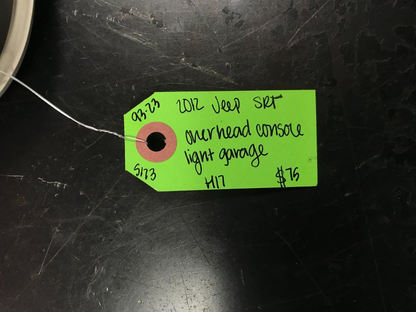 93-23
2012 Jeep SRT
overhead console
light garage
5123
H17
$75